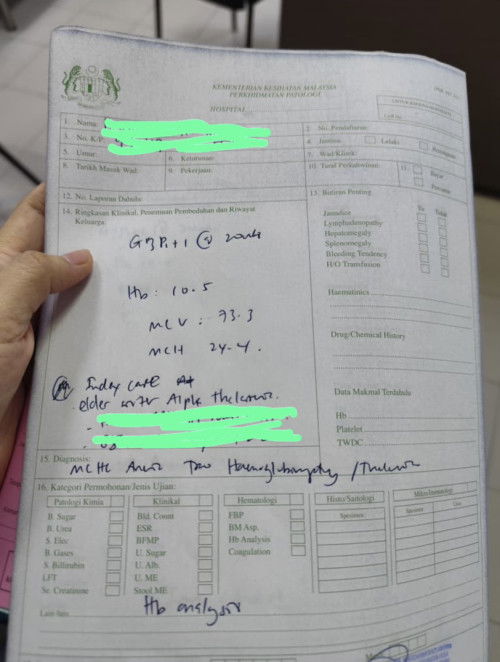 KEMENTERIAN KESIHATAN MALAYSIA
PERKHIDMATAN PATOLOGI
HOSPITAL
1. Nama:
3. No. K/P
5. Umur:
6. Keturunan:
8. Tarikh Masuk Wad:
9. Pekerjaan:
2. No. Pendaftaran:
4. Jantina:
Lelaki
Perempuan
7. Wad/Klinik:
10. Taraf Perkahwinan:
11.
Bayar
Percuma
12. No. Laporan Dahulu:
14. Ringkasan Klinikal, Penemuan Pembedahan dan Riwayat
Keluarga:
13. Butiran Penting
Ya Tidak
Jaundice
Lymphadenopathy
Hepatomegaly
Splenomegaly
Bleeding Tendency
H/O Transfusion
Haematinics
Drug/Chemical History
Data Makmal Terdahulu
Hb
Platelet
TWDC
Hb: 10.5
MCV: 73.3
MCH 24.4.
Index case
elder sister Alpha
15. Diagnosis:
MCHC
16. Kategori Permohonan/Jenis Ujian:
Patologi Kimia
B. Sugar
B. Urea
S. Elec
B. Gases
S. Billirubin
LFT
Se. Creatinine
Klinikal
Bld. Count
ESR
BFMP
U. Sugar
U. Alb.
U. ME
Stool ME
Hematologi
FBP
BM Asp.
Hb Analysis
Coagulation
Histo/Saitologi
Spesimen
Mikro/Imunologi
Spesimen
Ujian
Lain-lain
Hb analysis